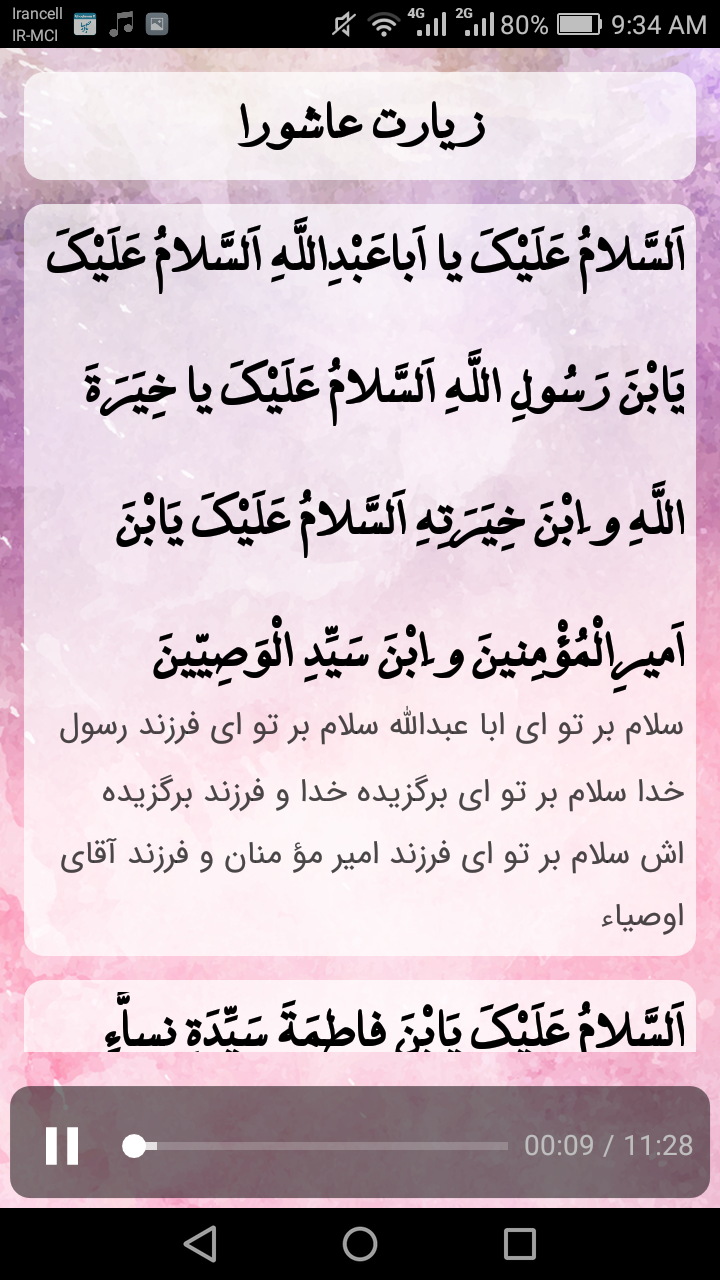 Irancell
IR-MCI
4G
2G
80%
9:34 AM
زیارت عاشورا
اَلسَّلامُ عَلَیْکَ یا اَباعَبْدِاللَّهِ اَلسَّلامُ عَلَیْکَ
یَابْنَ رَسُولِ اللَّهِ اَلسَّلامُ عَلَیْکَ یا خِیَرَةَ
اللَّهِ و اِبْنَ خِیَرَتِهِ اَلسَّلامُ عَلَیْکَ یَابْنَ
اَمیرِالْمُؤْمِنینَ و اِبْنَ سَیِّدِ الْوَصِیّینَ
سلام بر تو ای ابا عبدالله سلام بر تو ای فرزند رسول
خدا سلام بر تو ای برگزیده خدا و فرزند برگزیده
اش سلام بر تو ای فرزند امیر مؤ منان و فرزند آقای
اوصیاء
اَلسَّلامُ عَلَیْکَ یَابْنَ فاطِمَةَ سَیِّدَةِ نِساَّءِ
00:09 / 11:28